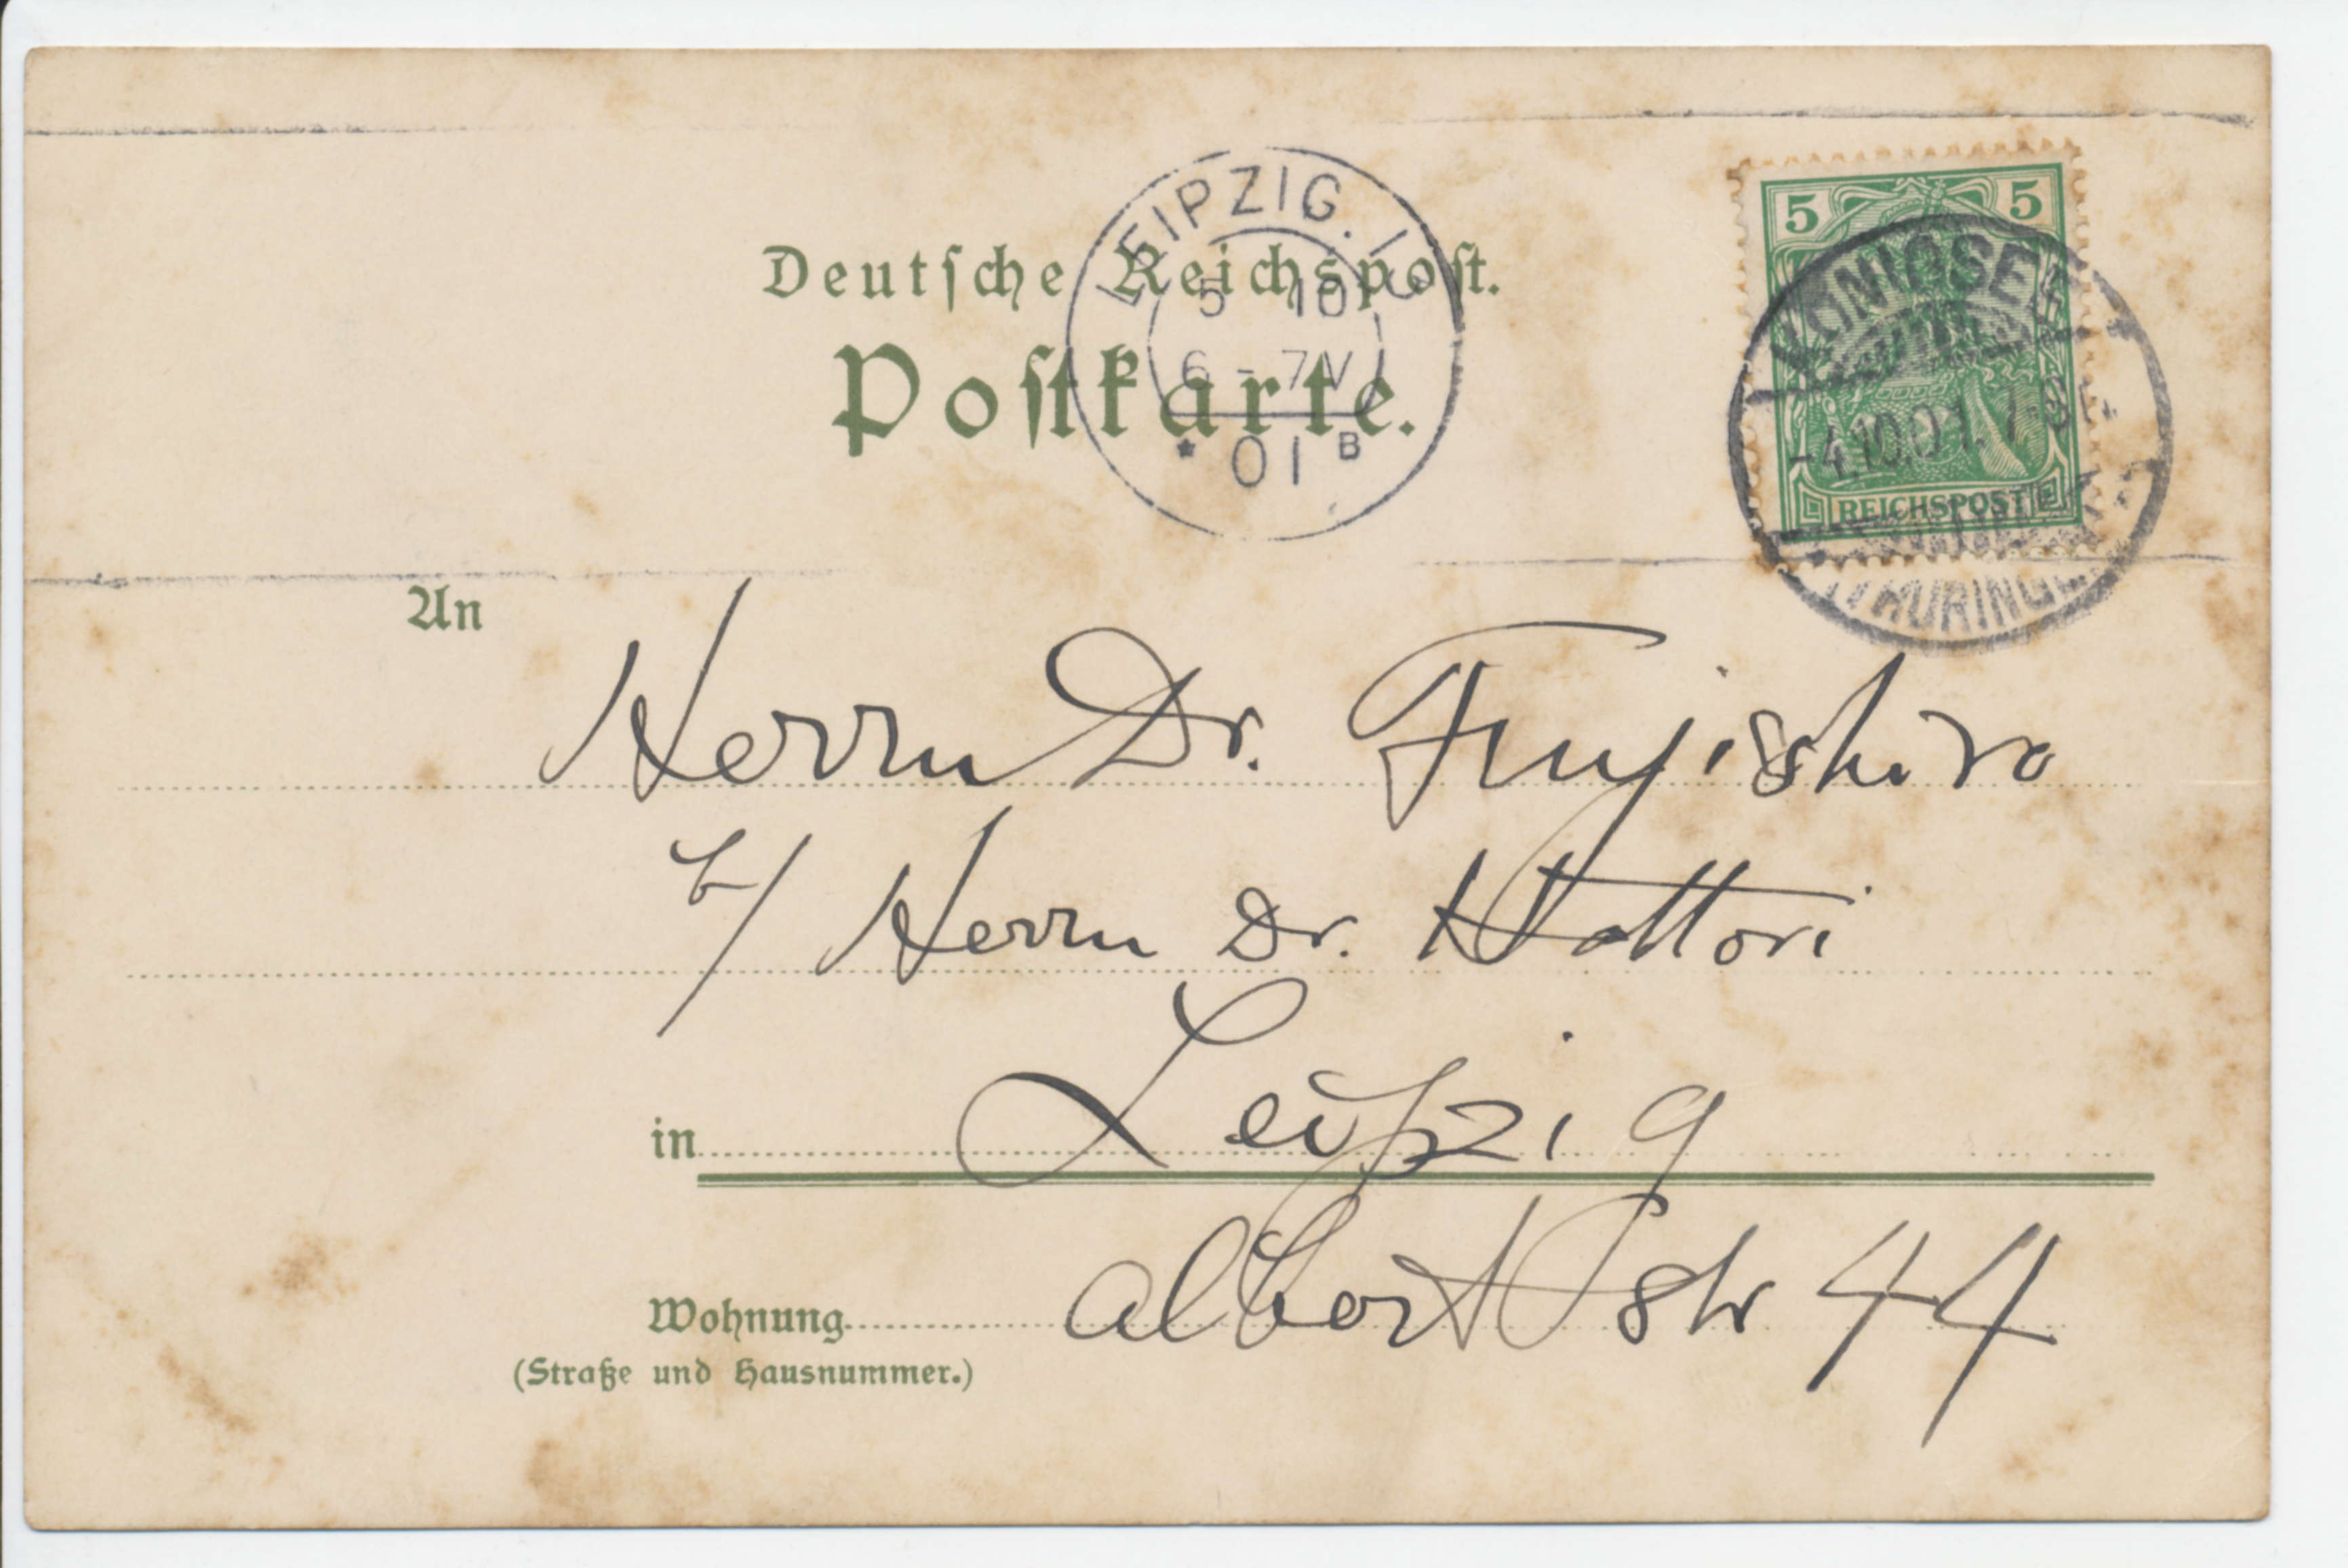 Deutsche Reichspost.
Postkarte.
LEIPZIG.
5 10
6-7 V
* 01 B
5 5
REICHSPOST
KÖNIGSEE
-4.10.01. 7-8
(THÜRINGEN)
An
Herrn Dr. Fujishiro
b/ Herrn Dr. Hattori
in Leipzig
Wohnung albert str 44
(Straße und Hausnummer.)